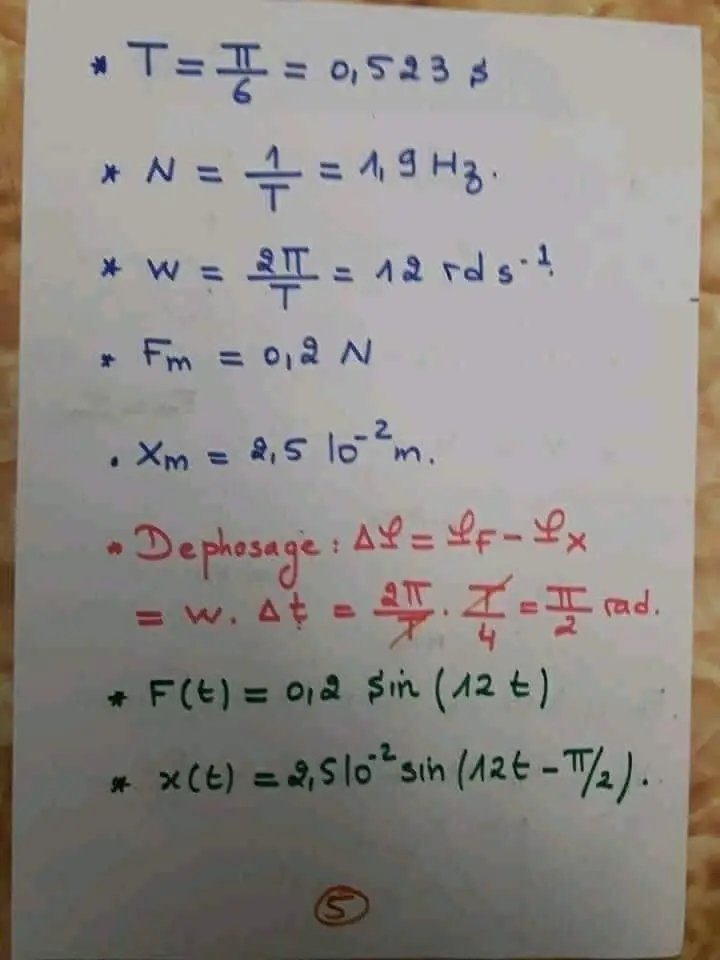 * T = π/6 = 0,523 s
* N = 1/T = 1,9 Hz.
* W = 2π/T = 12 rd s⁻¹.
* Fm = 0,2 N
. Xm = 2,5 10⁻² m.
* Dephosage : Δφ = φF - φX
= W. Δt = 2π/T . T/4 = π/2 rad.
* F(t) = 0,2 sin (12 t)
* x(t) = 2,5 10⁻² sin (12t - π/2).
5